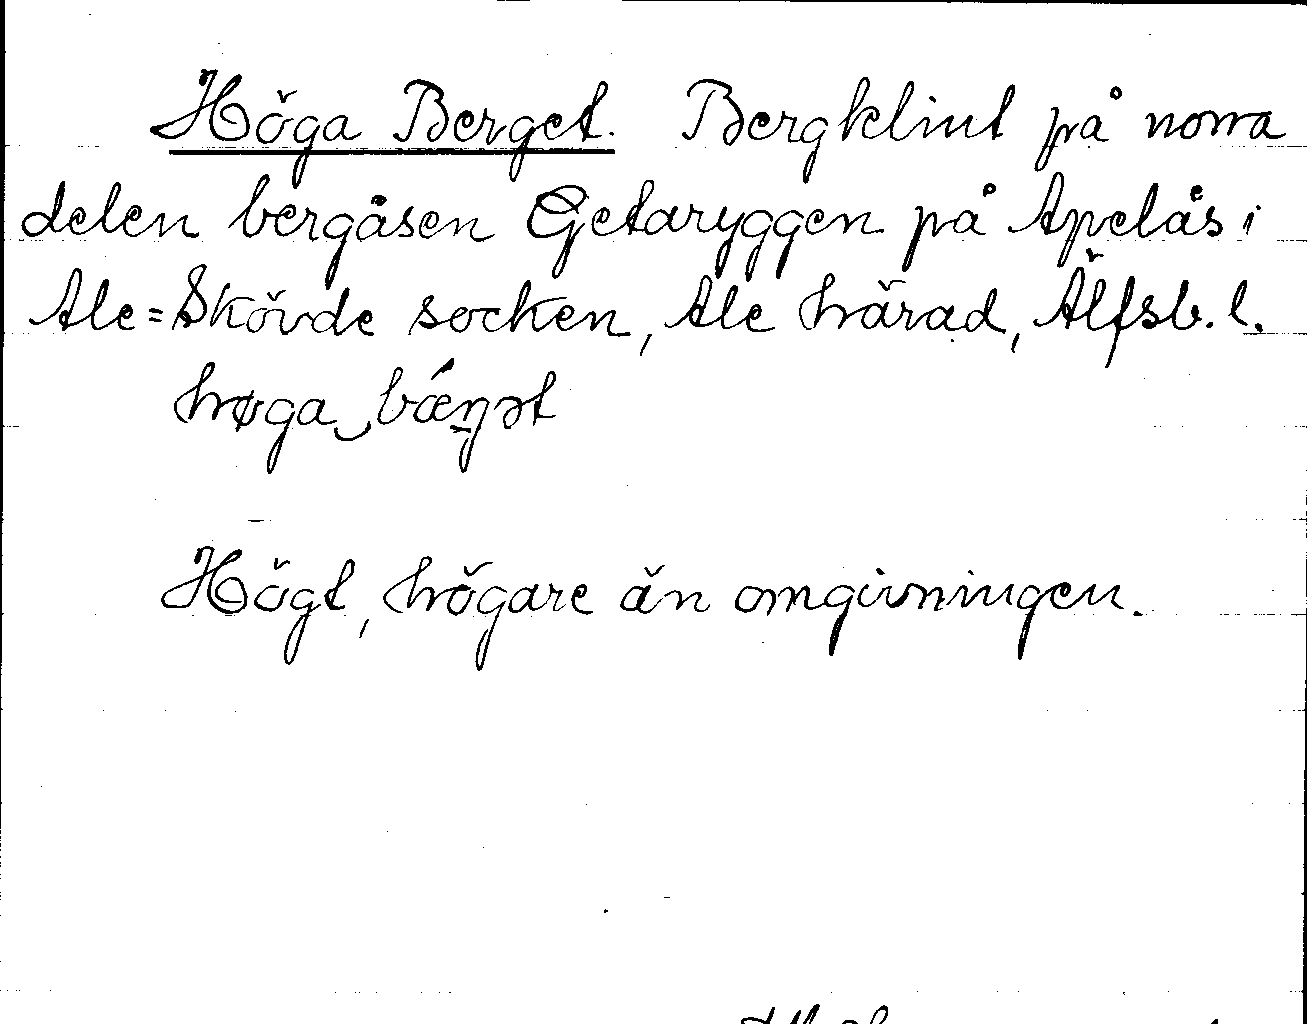 Höga Berget. Bergklint på norra
delen bergåsen Getaryggen på Apelås i
Ale=Skövde socken, Ale härad, Älfsb. l.
høga‿bǽŋət
Högt, högare än omgivningen.